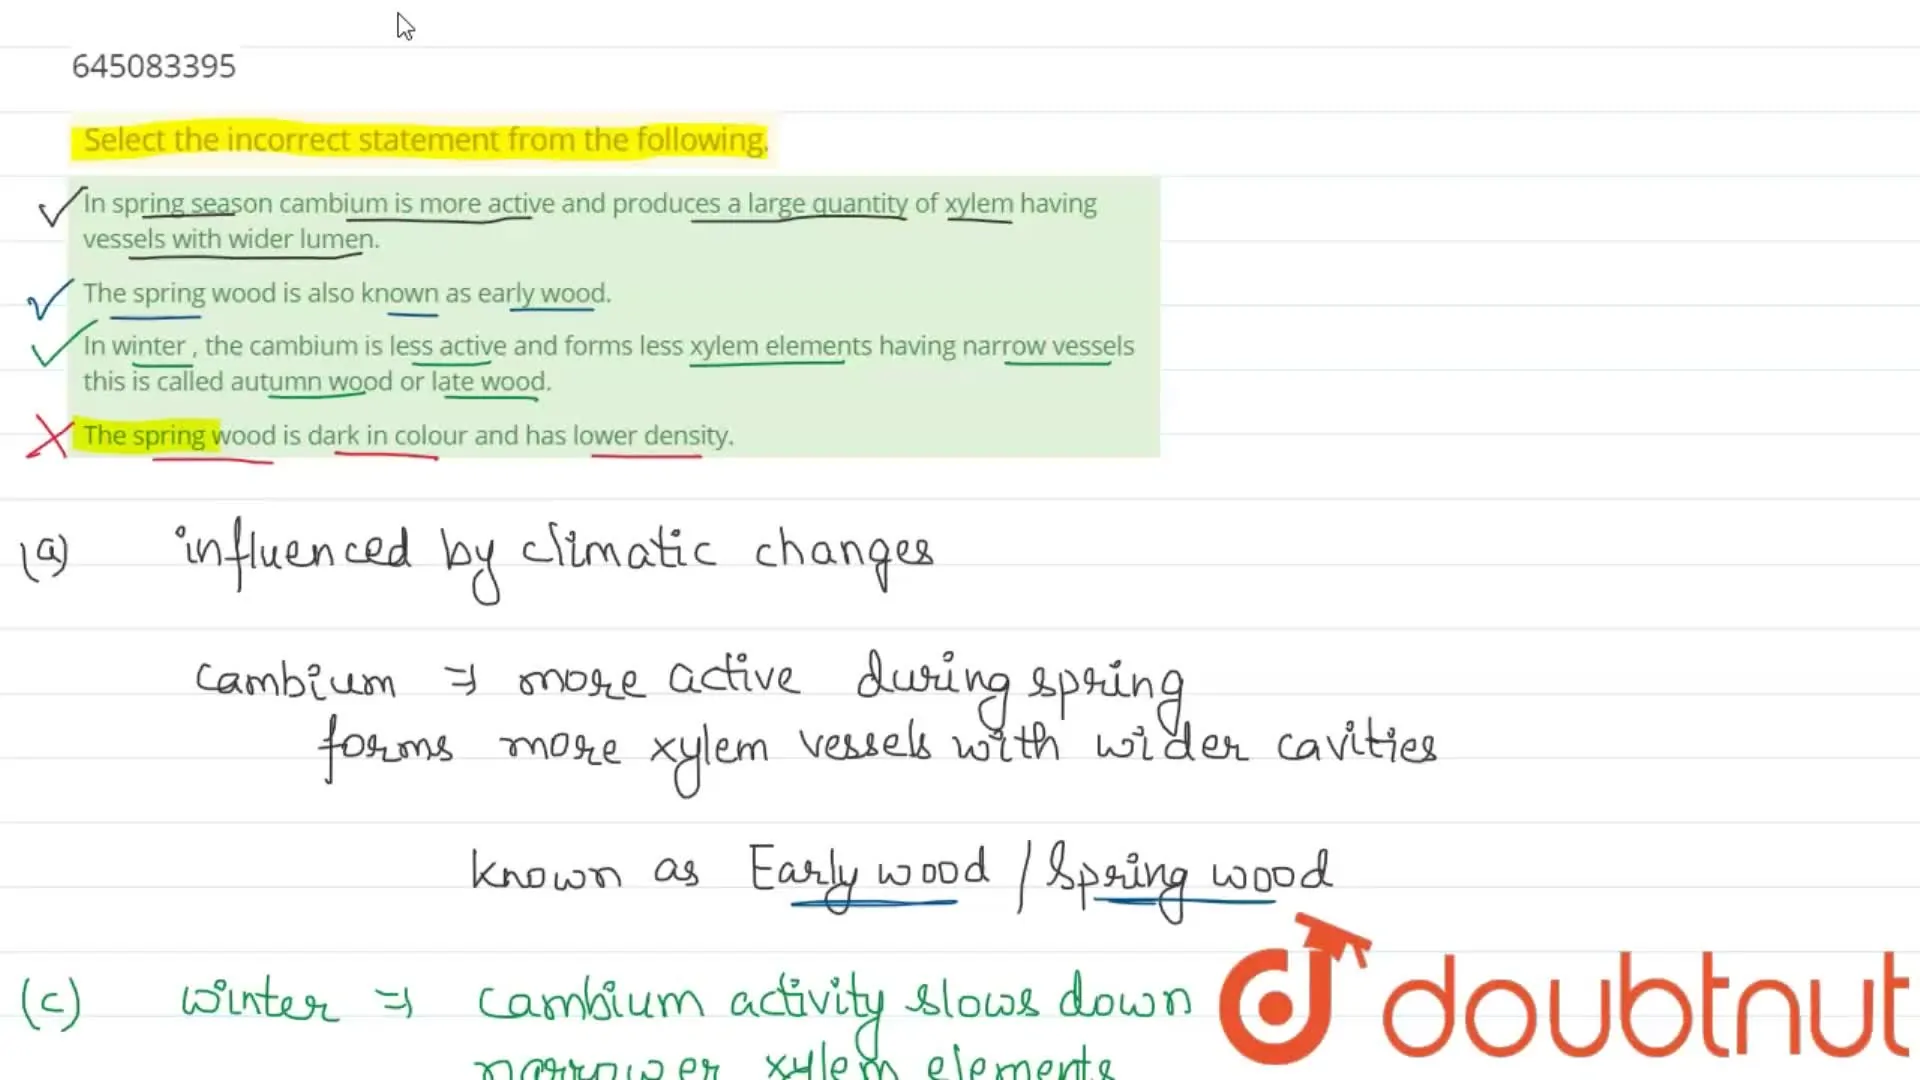 645083395
Select the incorrect statement from the following.
In spring season cambium is more active and produces a large quantity of xylem having
vessels with wider lumen.
The spring wood is also known as early wood.
In winter , the cambium is less active and forms less xylem elements having narrow vessels
this is called autumn wood or late wood.
The spring wood is dark in colour and has lower density.
(a) influenced by climatic changes
cambium ⇒ more active during spring
forms more xylem vessels with wider cavities
known as Early wood / Spring wood
(c) winter ⇒ cambium activity slows down
narrower xylem elements
doubtnut